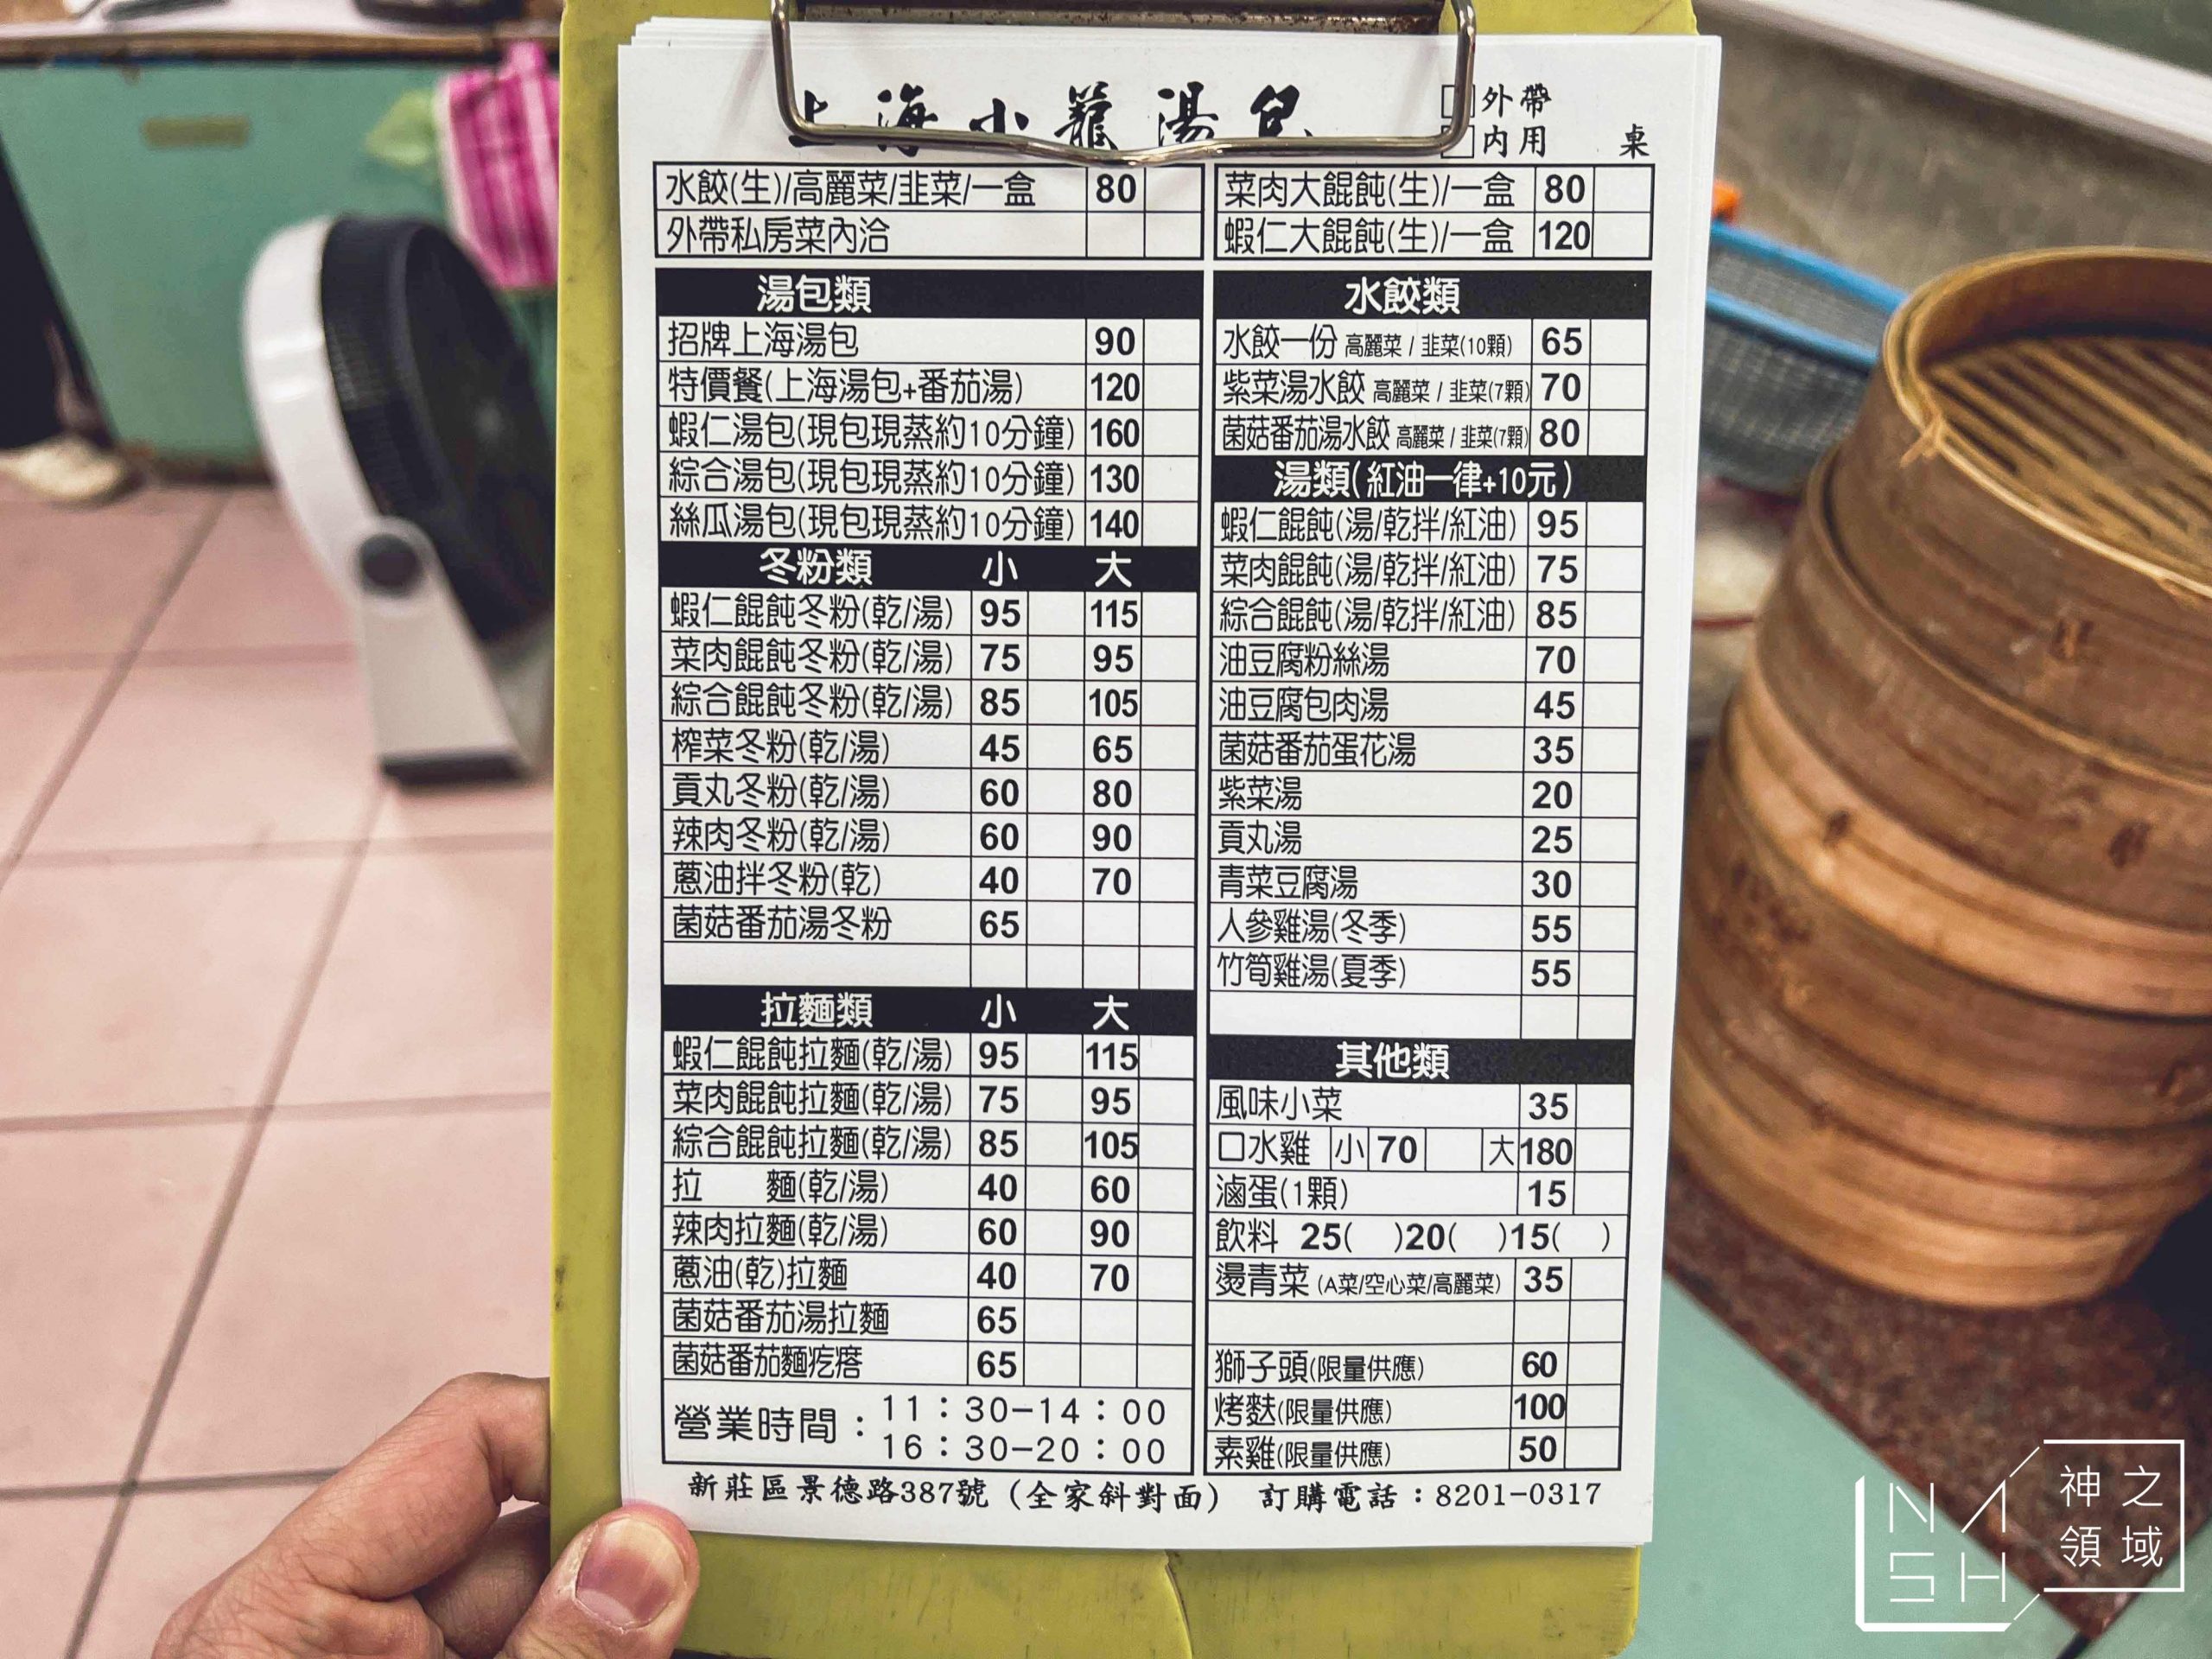 上海小籠湯包
□外帶
□內用 桌
水餃(生)/高麗菜/韭菜/一盒 80
外帶私房菜內洽
菜肉大餛飩(生)/一盒 80
蝦仁大餛飩(生)/一盒 120
湯包類
招牌上海湯包 90
特價餐(上海湯包+番茄湯) 120
蝦仁湯包(現包現蒸約10分鐘) 160
綜合湯包(現包現蒸約10分鐘) 130
絲瓜湯包(現包現蒸約10分鐘) 140
冬粉類 小 大
蝦仁餛飩冬粉(乾/湯) 95 115
菜肉餛飩冬粉(乾/湯) 75 95
綜合餛飩冬粉(乾/湯) 85 105
榨菜冬粉(乾/湯) 45 65
貢丸冬粉(乾/湯) 60 80
辣肉冬粉(乾/湯) 60 90
蔥油拌冬粉(乾) 40 70
菌菇番茄湯冬粉 65
拉麵類 小 大
蝦仁餛飩拉麵(乾/湯) 95 115
菜肉餛飩拉麵(乾/湯) 75 95
綜合餛飩拉麵(乾/湯) 85 105
拉 麵(乾/湯) 40 60
辣肉拉麵(乾/湯) 60 90
蔥油(乾)拉麵 40 70
菌菇番茄湯拉麵 65
菌菇番茄麵疙瘩 65
營業時間：11：30-14：00
16：30-20：00
水餃類
水餃一份 高麗菜 / 韭菜(10顆) 65
紫菜湯水餃 高麗菜 / 韭菜(7顆) 70
菌菇番茄湯水餃 高麗菜 / 韭菜(7顆) 80
湯類(紅油一律+10元)
蝦仁餛飩(湯/乾拌/紅油) 95
菜肉餛飩(湯/乾拌/紅油) 75
綜合餛飩(湯/乾拌/紅油) 85
油豆腐粉絲湯 70
油豆腐包肉湯 45
菌菇番茄蛋花湯 35
紫菜湯 20
貢丸湯 25
青菜豆腐湯 30
人參雞湯(冬季) 55
竹筍雞湯(夏季) 55
其他類
風味小菜 35
口水雞 小 70 大 180
滷蛋(1顆) 15
飲料 25( )20( )15( )
燙青菜 (A菜/空心菜/高麗菜) 35
獅子頭(限量供應) 60
烤麩(限量供應) 100
素雞(限量供應) 50
新莊區景德路387號 (全家斜對面) 訂購電話：8201-0317
NASH
神之
領域